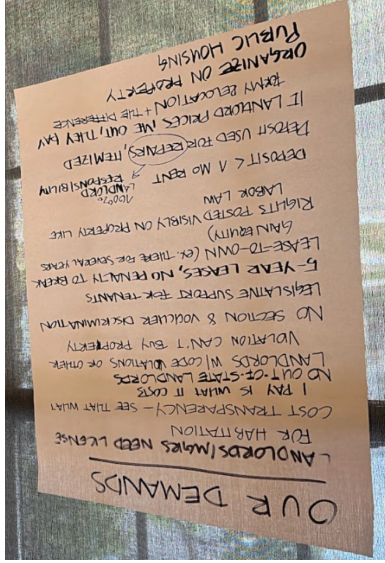 OUR DEMANDS
LANDLORDS/MGRS NEED LICENSE
FOR HABITATION
COST TRANSPARENCY – SEE THAT WHAT
I PAY IS WHAT IT COSTS
NO OUT-OF-STATE LANDLORDS
LANDLORDS W/ CODE VIOLATIONS OR OTHER
VIOLATION CAN'T BUY PROPERTY
NO SECTION 8 VOUCHER DISCRIMINATION
LEGISLATIVE SUPPORT FOR TENANTS
5-YEAR LEASES, NO PENALTY TO BREAK
LEASE-TO-OWN (EX. THERE FOR SEVERAL YEARS
GAIN EQUITY)
RIGHTS POSTED VISIBLY ON PROPERTY LIKE
LABOR LAW
100%
LANDLORD
RESPONSIBILITY
DEPOSIT < 1 MO RENT
DEPOSIT USED FOR REPAIRS, ITEMIZED
IF LANDLORD PRICES ME OUT, THEY PAY
FOR MY RELOCATION + THE DIFFERENCE
ORGANIZE ON PROPERTY
PUBLIC HOUSING